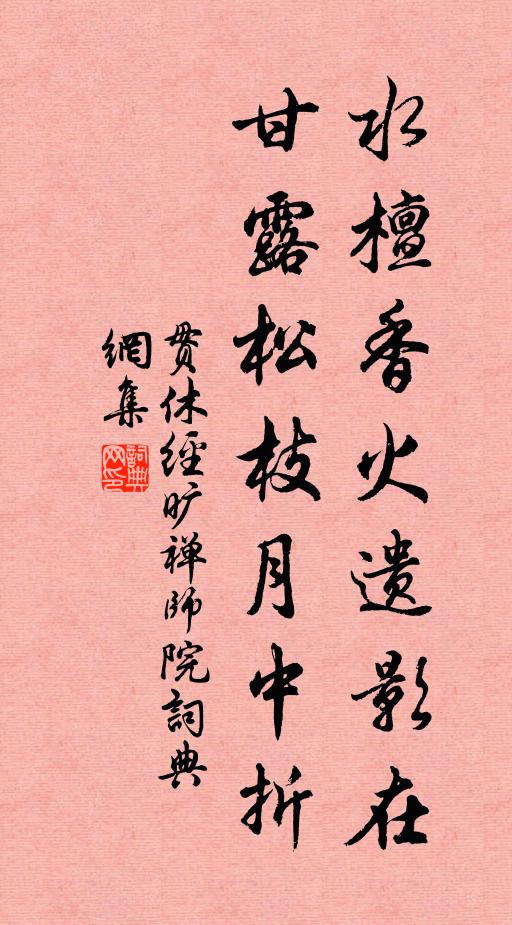 水檀香火遗影在
甘露松枝月中折
贯休经旷禅師院詞典
網集
詞典
网印